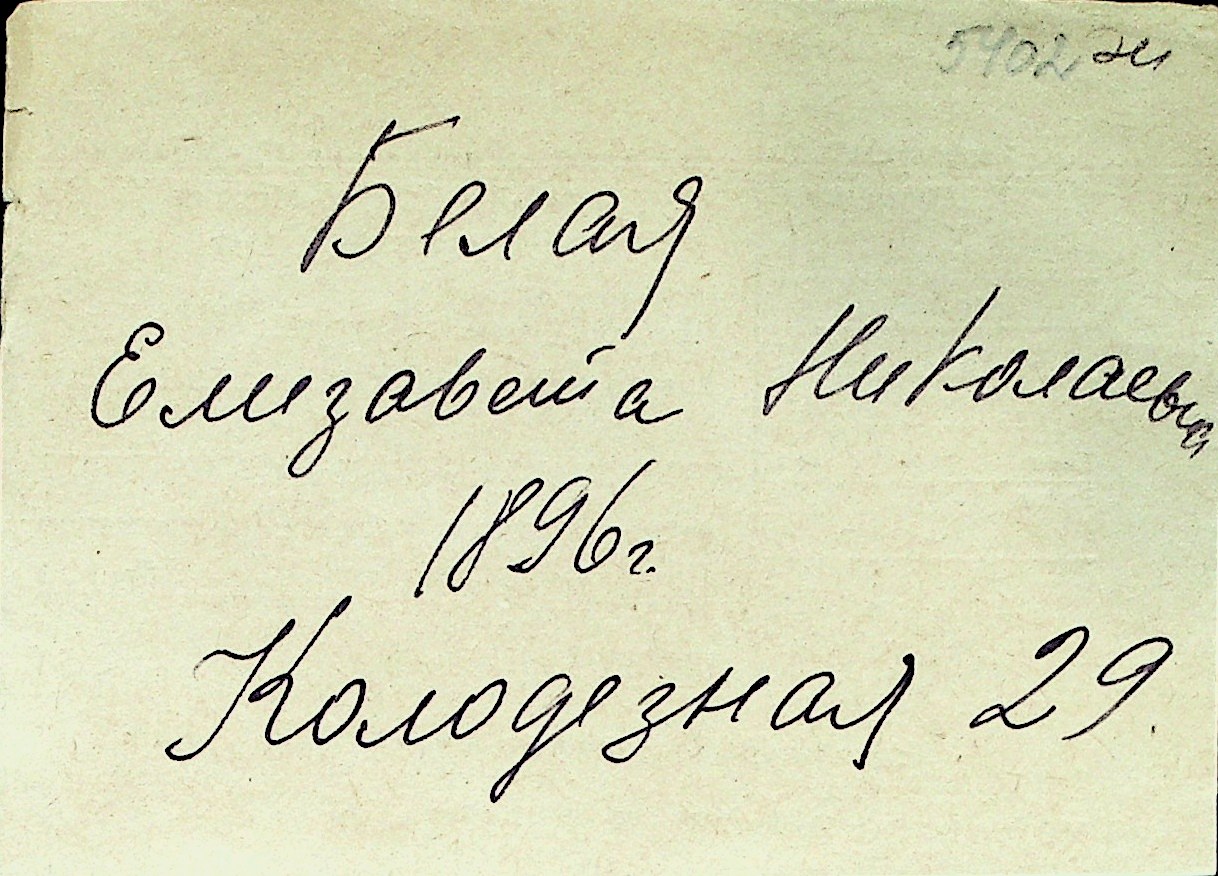 5402 эи
Белая
Елизавета Николаевна
1896г.
Колодезная 29.